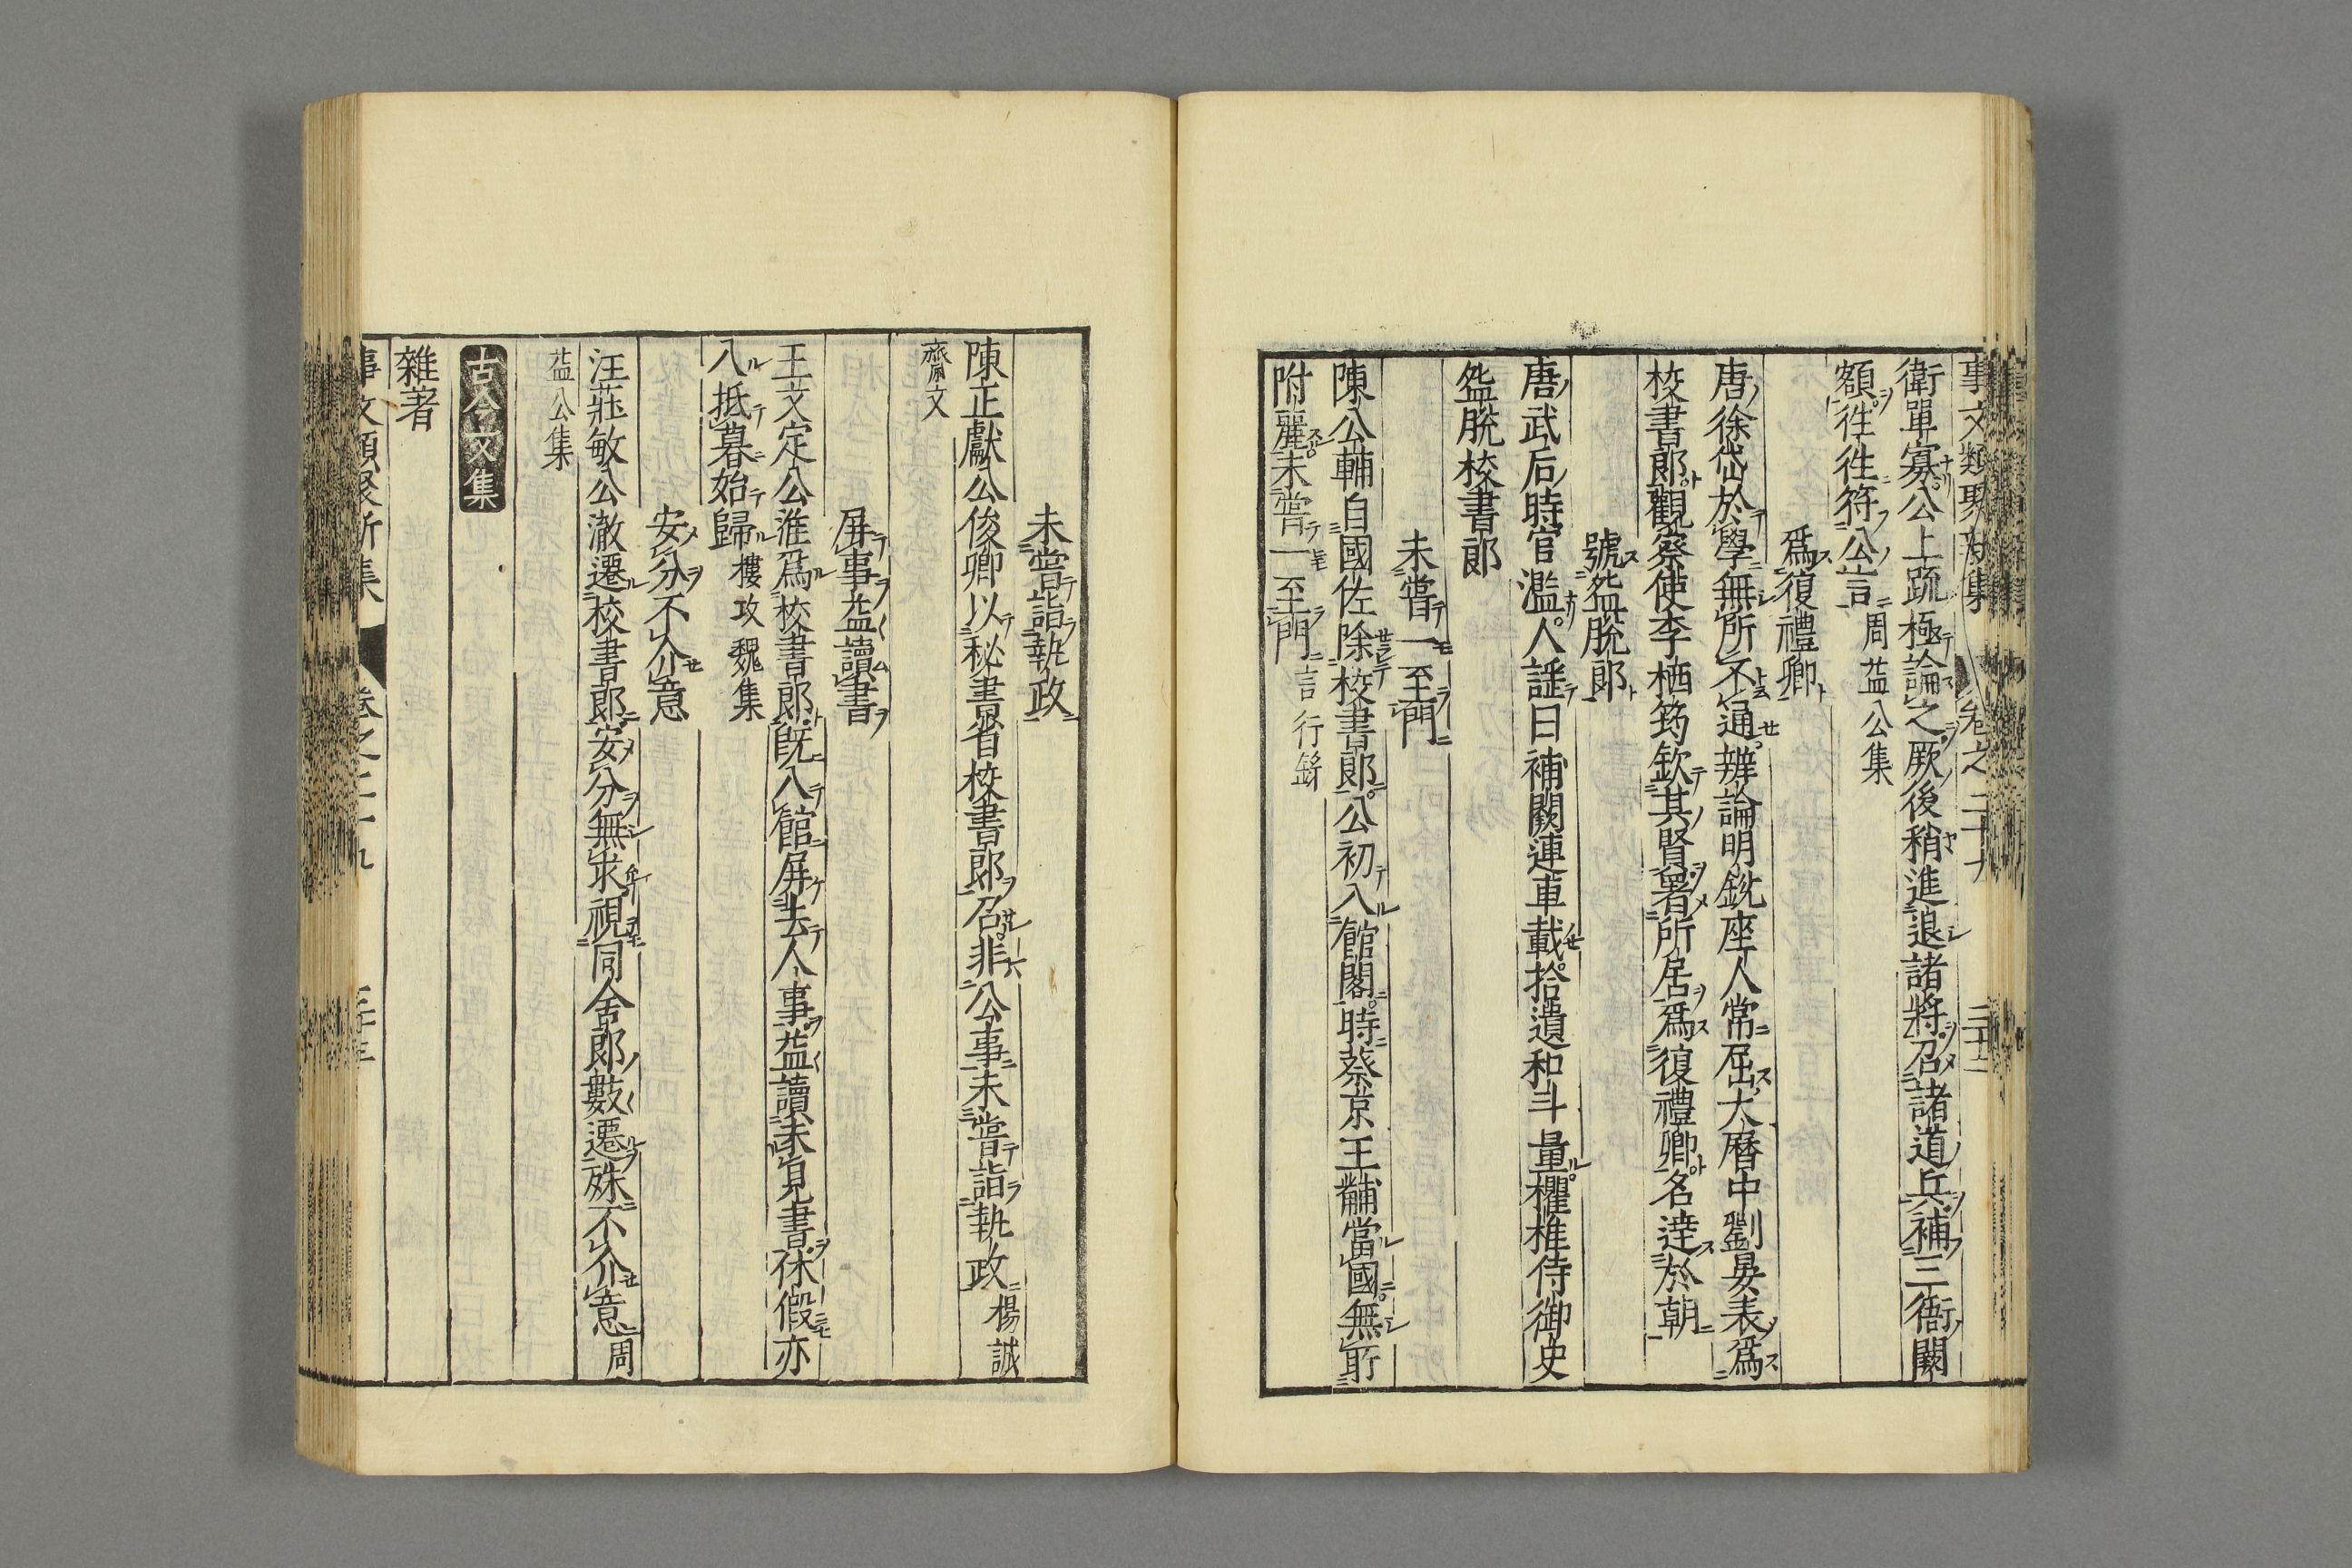 衛單寡公上疏極論之厥後稍進退諸將召諸道兵補三衙闕
額徃徃符公言周益公集
爲復禮卿
唐徐岱於學無所不通辨論明銳座人常屈大曆中劉晏表爲
校書郎觀察使李栖筠欽其賢署所居爲復禮卿名達於朝
號盌脫郎
唐武后時官濫人謡曰補闕連車載拾遺和斗量欋椎侍御史
盌脫校書郎
未嘗一至門
陳公輔自國佐除校書郎公初入館閣時蔡京王黼當國無所
附麗未嘗一至門言行錄
未嘗詣執政
陳正獻公俊卿以秘書省校書郎召非公事未嘗詣執政楊誠
齋文
屏事益讀書
王文定公淮爲校書郎旣入館屏去人事益讀未見書休假亦
入抵暮始歸樓攻魏集
安分不介意
汪莊敏公澈遷校書郎安分無求視同舍郎數遷殊不介意周
益公集
古今文集
雜著